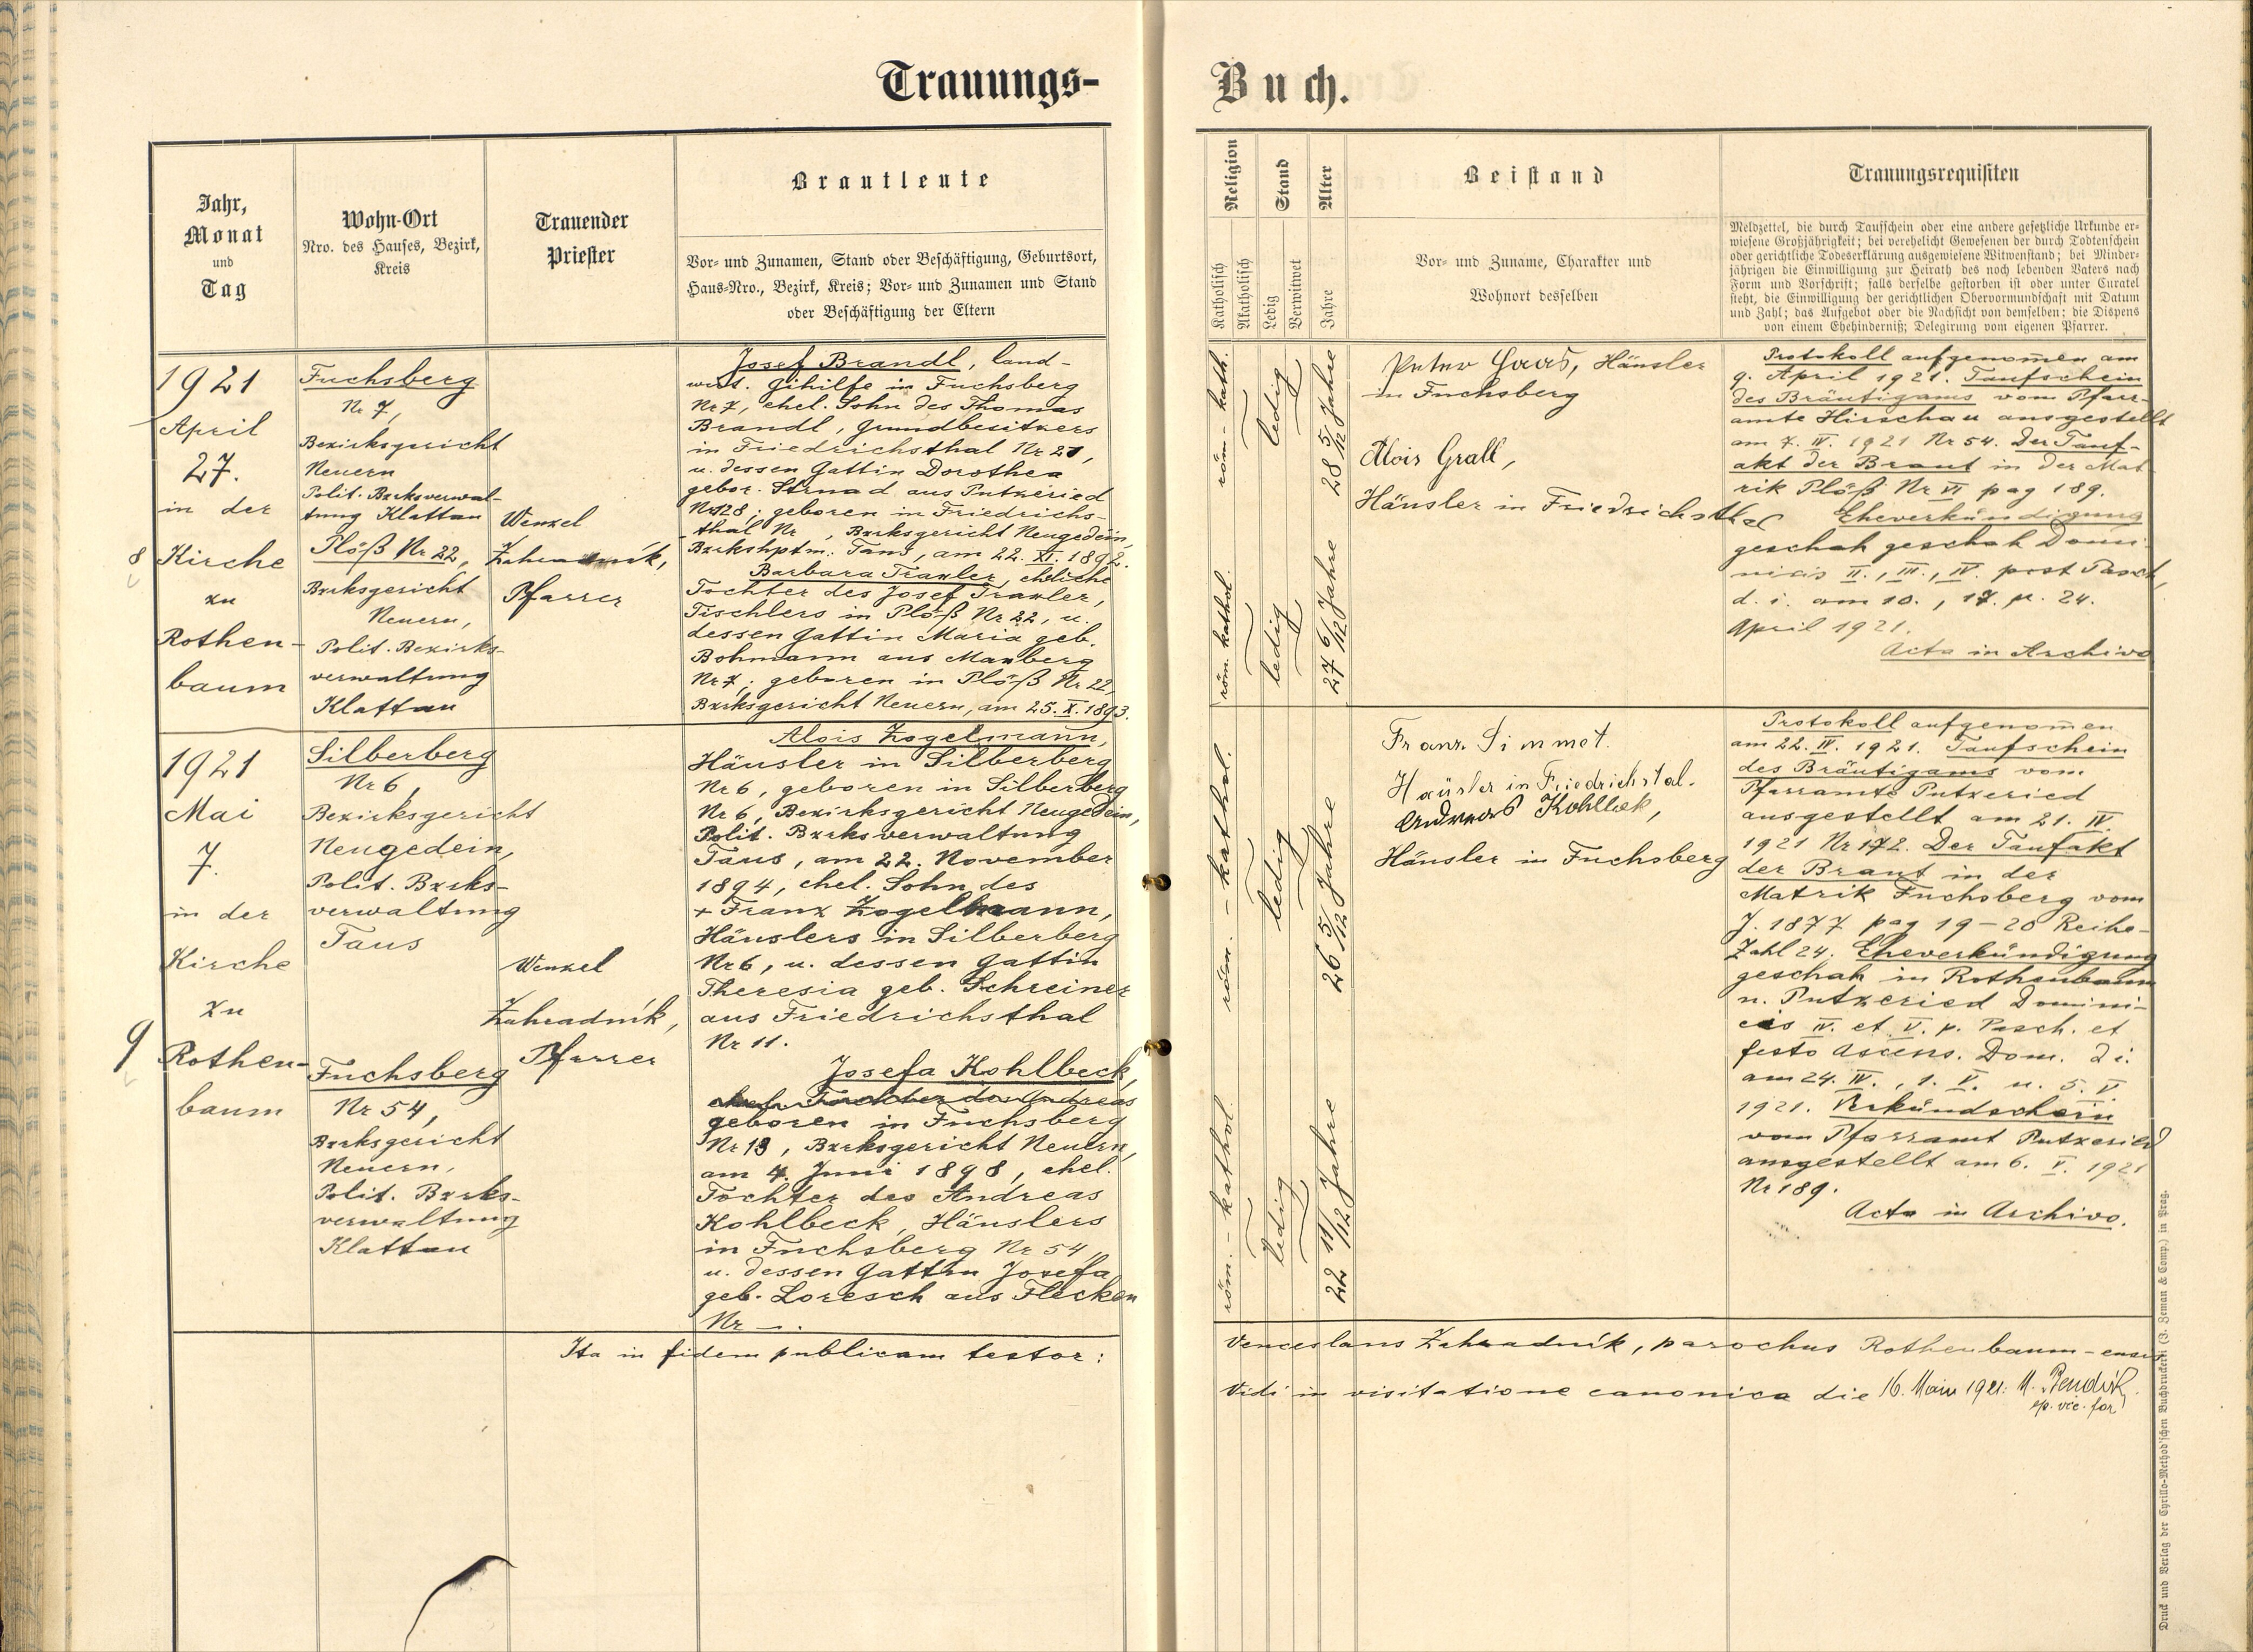 Trauungs-
Buch.
Jahr,
Monat
und
Tag
Wohn-Ort
Nro. des Hauses, Bezirk,
Kreis
Trauender
Priester
Brautleute
Vor- und Zunamen, Stand oder Beschäftigung, Geburtsort,
Haus-Nro., Bezirk, Kreis; Vor- und Zunamen und Stand
oder Beschäftigung der Eltern
Religion
Katholisch
Akatholisch
Stand
Ledig
Verwitwet
Alter
Jahre
Beistand
Vor- und Zuname, Charakter und
Wohnort desselben
Trauungsrequisiten
Meldzettel, die durch Taufschein oder eine andere gesetzliche Urkunde er-
wiesene Großjährigkeit; bei verehelicht Gewesenen der durch Todtenschein
oder gerichtliche Todeserklärung ausgewiesene Witwenstand; bei Minder-
jährigen die Einwilligung zur Heirath des noch lebenden Vaters nach
Form und Vorschrift; falls derselbe gestorben ist oder unter Curatel
steht, die Einwilligung der gerichtlichen Obervormundschaft mit Datum
und Zahl; das Aufgebot oder die Nachsicht von demselben; die Dispens
von einem Ehehinderniß; Delegirung vom eigenen Pfarrer.
8
1921
April
27.
in der
Kirche
zu
Rothen-
baum
Fuchsberg
Nr 7,
Bezirksgericht
Neuern
Polit. Bzrksverwal-
tung Klattau
Plöß Nr 22,
Bzrksgericht
Neuern,
Polit. Bezirks-
verwaltung
Klattau
Wenzel
Zahradník,
Pfarrer
Josef Brandl, land-
wirt. Gihilfe in Fuchsberg
Nr 7, ehel. Sohn des Thomas
Brandl, Grundbesitzers
in Friedrichsthal Nr 21,
u. dessen Gattin Dorothea
gebor. Strnad aus Putzeried
Nr 128; geboren in Friedrichs-
thal Nr , Bzrksgericht Neugedein,
Bzrkshptm. Taus, am 22. XI. 1892.
Barbara Traxler, eheliche
Tochter des Josef Traxler,
Tischlers in Plöß Nr 22, u.
dessen Gattin Maria geb.
Bohmann aus Maxberg
Nr 7; geboren in Plöß Nr 22,
Bzrksgericht Neuern, am 25. X. 1893.
röm- kath.
ledig
28 5/12 Jahre
röm. kathol.
ledig
27 6/12 Jahre
Peter Haas, Häusler
in Fuchsberg
Alois Grall,
Häusler in Friedrichsthal
Protokoll aufgenom̄en am
9. April 1921. Taufschein
des Bräutigams vom Pfarr-
amte Hirschau ausgestellt
am 7. IV. 1921 Nr 54. Der Tauf-
akt der Braut in der Mat
rik Plöß Nr VI pag 189.
Eheverkündigung
geschah geschah Domi-
nicis II., III., IV. post Pasch,
d. i. am 10., 17. u. 24.
April 1921.
Acta in Archivo
9
1921
Mai
7.
in der
Kirche
zu
Rothen-
baum
Silberberg
Nr 6,
Bezirksgericht
Neugedein,
Polit. Bzrks-
verwaltung
Taus
Fuchsberg
Nr 54,
Bzrksgericht
Neuern,
Polit. Bzrks-
verwaltung
Klattau
Wenzel
Zahradník,
Pfarrer
Alois Zogelmann,
Häusler in Silberberg
Nr 6, geboren in Silberberg
Nr 6, Bezirksgericht Neugedein,
Polit. Bzrksverwaltung
Taus, am 22. November
1894, ehel. Sohn des
+ Franz Zogelmann,
Häuslers in Silberberg
Nr 6, u. dessen Gattin
Theresia geb. Schreiner
aus Friedrichsthal
Nr 11.
Josefa Kohlbeck,
ehel. Tochter des Andreas
geboren in Fuchsberg
Nr 13, Bzrksgericht Neuern,
am 4. Juni 1898, ehel.
Tochter des Andreas
Kohlbeck, Häuslers
in Fuchsberg Nr 54,
u. dessen Gattin Josefa
geb. Loresch aus Flecken
Nr —.
röm. - kathol.
ledig
26 5/12 Jahre
röm. - kathol.
ledig
22 11/12 Jahre
Franz Simmet.
Haüsler in Friedrichstal.
Andreas Kohlbek,
Häusler in Fuchsberg
Protokoll aufgenom̄en
am 22. IV. 1921. Taufschein
des Bräutigams vom
Pfarramte Putzeried
ausgestellt am 21. IV.
1921 Nr 172. Der Taufakt
der Braut in der
Matrik Fuchsberg vom
J. 1877 pag 19-20 Reihe-
Zahl 24. Eheverkündigung
geschah in Rothenbaum
u. Putzeried Domini-
cis IV. et V. p. Pasch. et
festo Ascens. Dom. d i.
am 24. IV., 1. V. u. 5. V.
1921. Verkündschein
vom Pfarramt Putzeried
ausgestellt am 6. V. 1921
Nr 189.
Acta in Archivo.
Ita in fidem publicam testor:
Venceslaus Zahradník, parochus Rothenbaum-ensis
Vidi in visitatione canonica die 16. Maii 1921. ep. vic. for
Druck und Verlag der Cyrillo-Method'schen Buchdruckerei (J. Zeman & Comp.) in Prag.